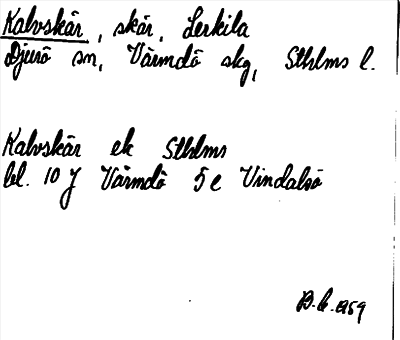 Kalvskär, skär, Lerkila
Djurö sn, Värmdö skg, Sthlms l.
Kalvskär ek Sthlms
bl. 10 J Värmdö 5 e Vindalsö
B. G. 1959